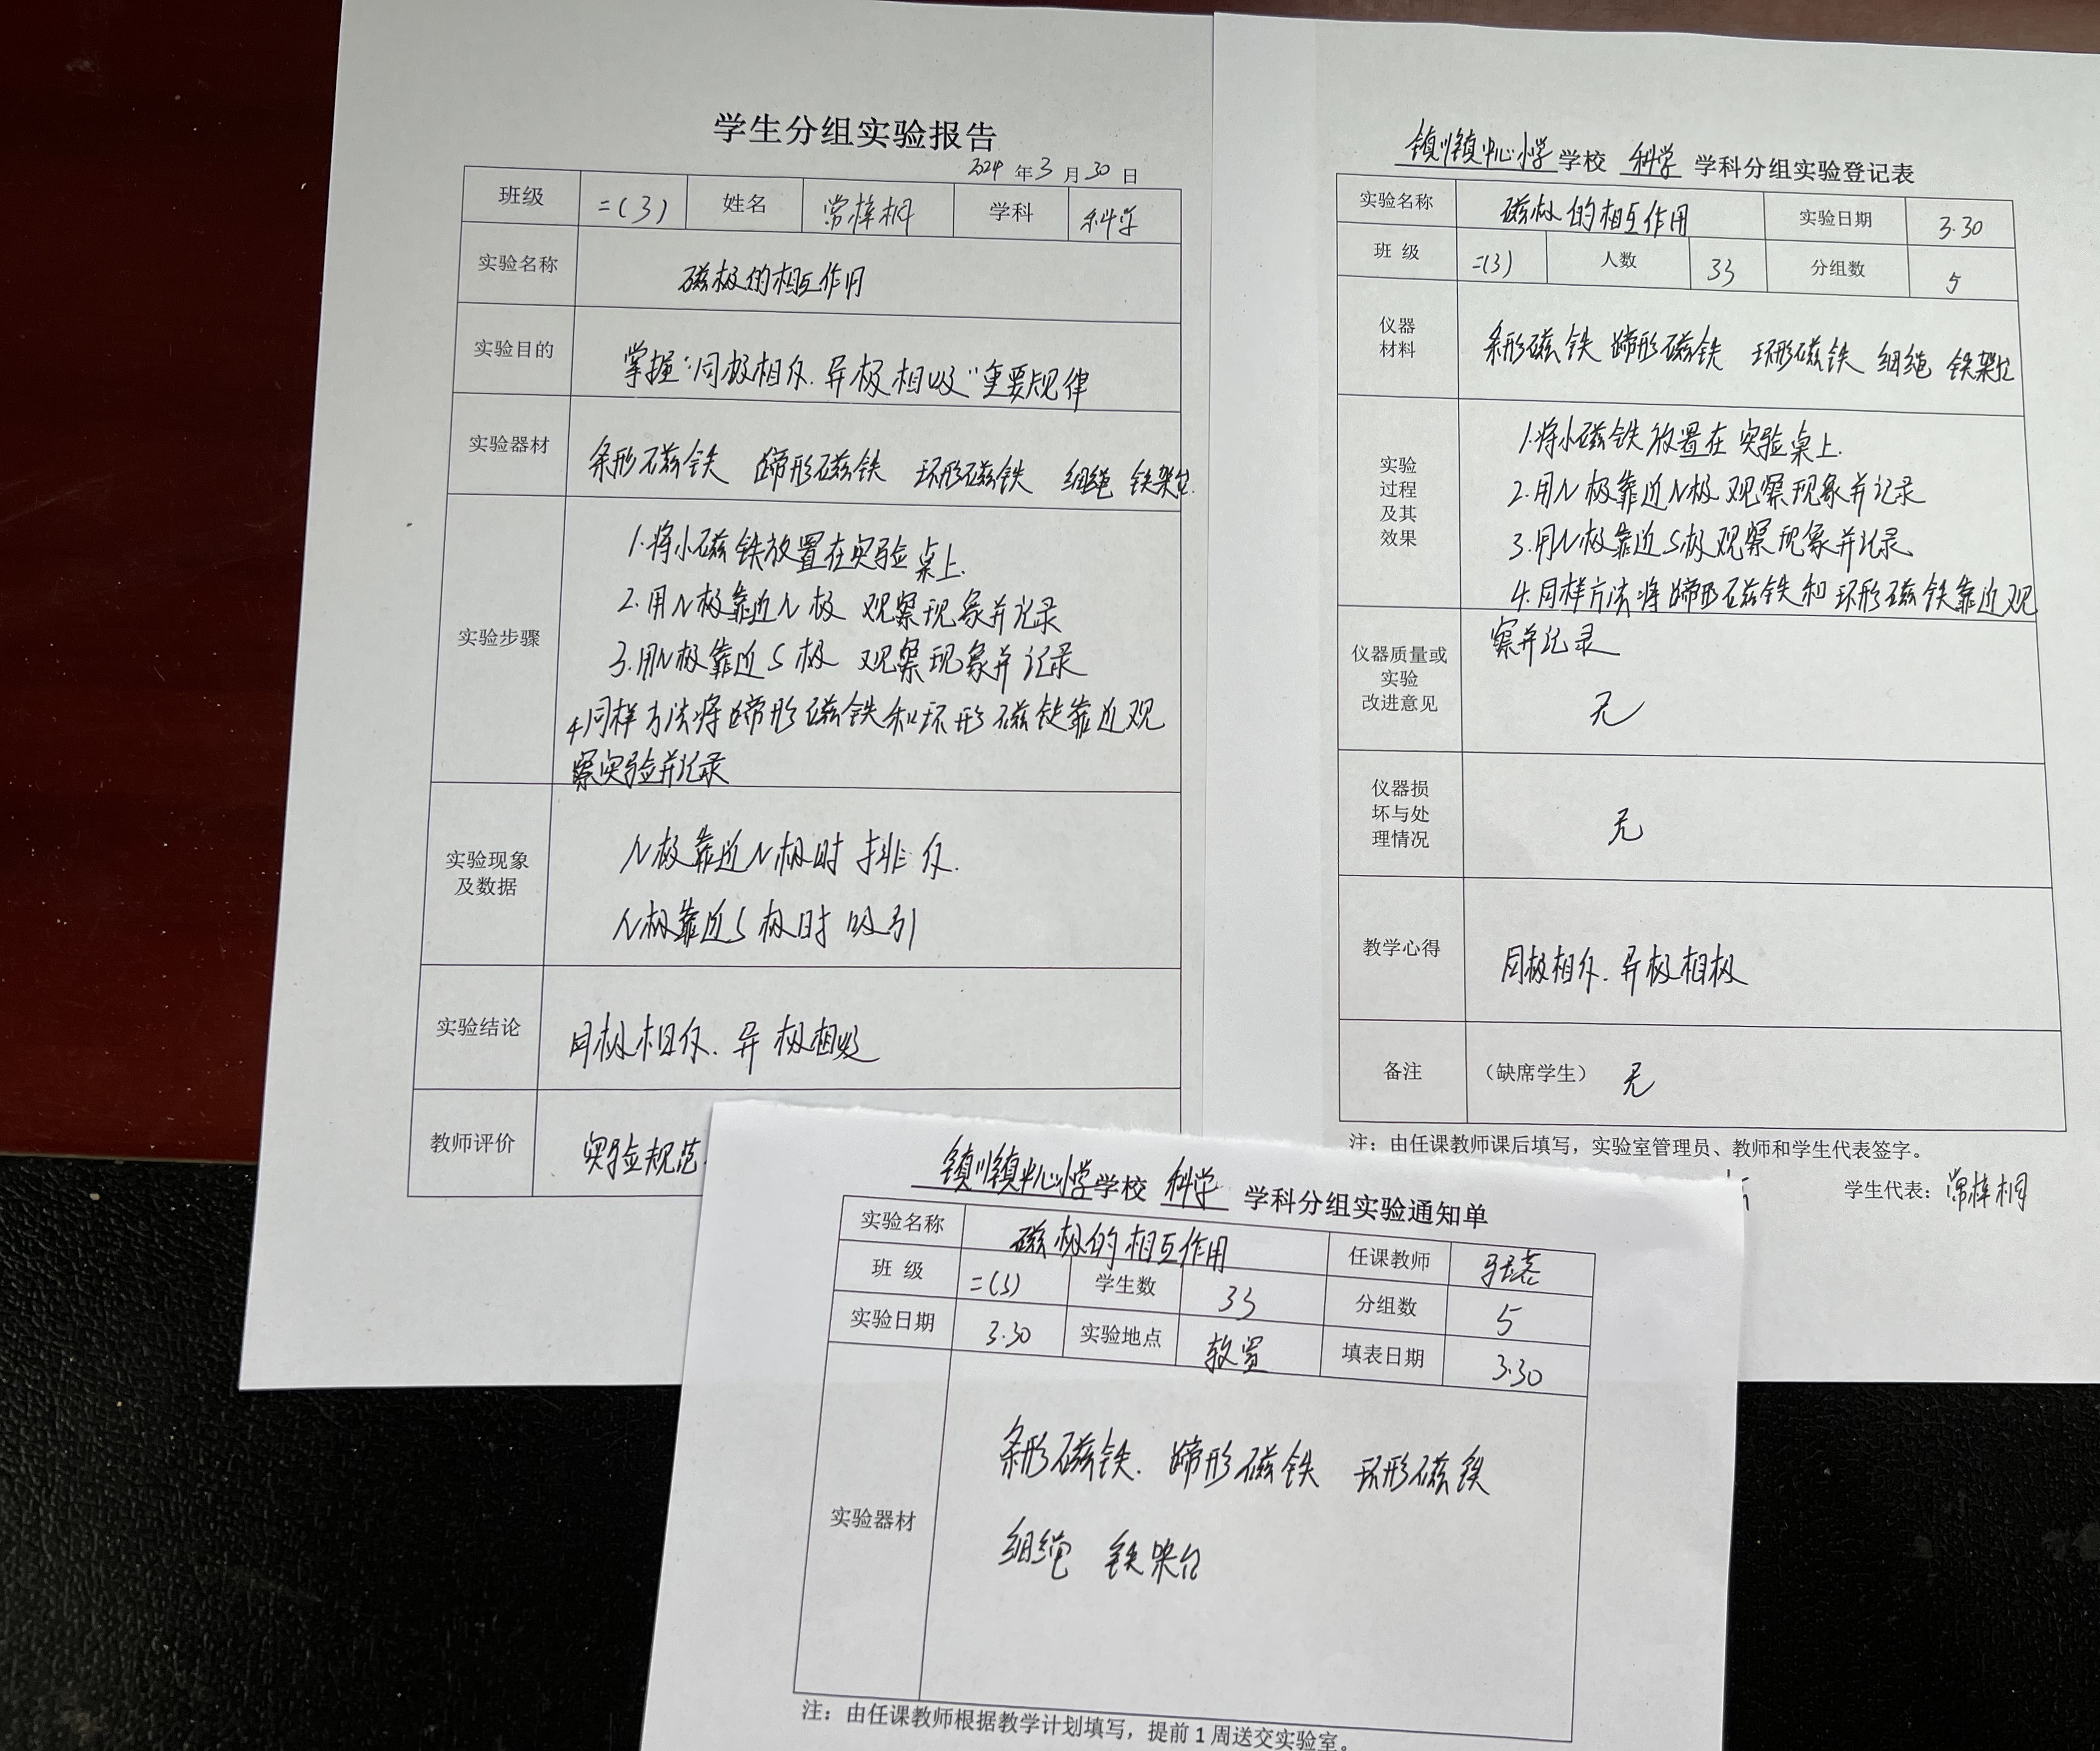 学生分组实验报告
2024 年 3 月 30 日
班级 二(3) 姓名 常梓桐 学科 科学
实验名称 磁极的相互作用
实验目的 掌握"同极相斥.异极相吸"重要规律
实验器材 条形磁铁 蹄形磁铁 环形磁铁 细绳 铁架台
实验步骤
1.将小磁铁放置在实验桌上.
2.用N极靠近N极 观察现象并记录
3.用N极靠近S极 观察现象并记录
4.同样方法将蹄形磁铁和环形磁铁靠近观
察实验并记录
实验现象
及数据
N极靠近N极时排斥.
N极靠近S极时吸引
实验结论 同极相斥.异极相吸
教师评价 实验规范.
镇川镇中心小学学校 科学 学科分组实验登记表
实验名称 磁极的相互作用 实验日期 3.30
班 级 二(3) 人数 33 分组数 5
仪器
材料
条形磁铁 蹄形磁铁 环形磁铁 细绳 铁架台
实验
过程
及其
效果
1.将小磁铁放置在实验桌上.
2.用N极靠近N极观察现象并记录
3.用N极靠近S极观察现象并记录
4.同样方法将蹄形磁铁和环形磁铁靠近观
察并记录
仪器质量或
实验
改进意见
无
仪器损
坏与处
理情况
无
教学心得 同极相斥.异极相极
备注 (缺席学生) 无
注：由任课教师课后填写，实验室管理员、教师和学生代表签字。
学生代表：常梓桐
镇川镇中心小学学校 科学 学科分组实验通知单
实验名称 磁极的相互作用 任课教师
班 级 二(3) 学生数 33 分组数 5
实验日期 3.30 实验地点 教室 填表日期 3.30
实验器材
条形磁铁. 蹄形磁铁 环形磁铁
细绳 铁架台
注：由任课教师根据教学计划填写，提前 1 周送交实验室。